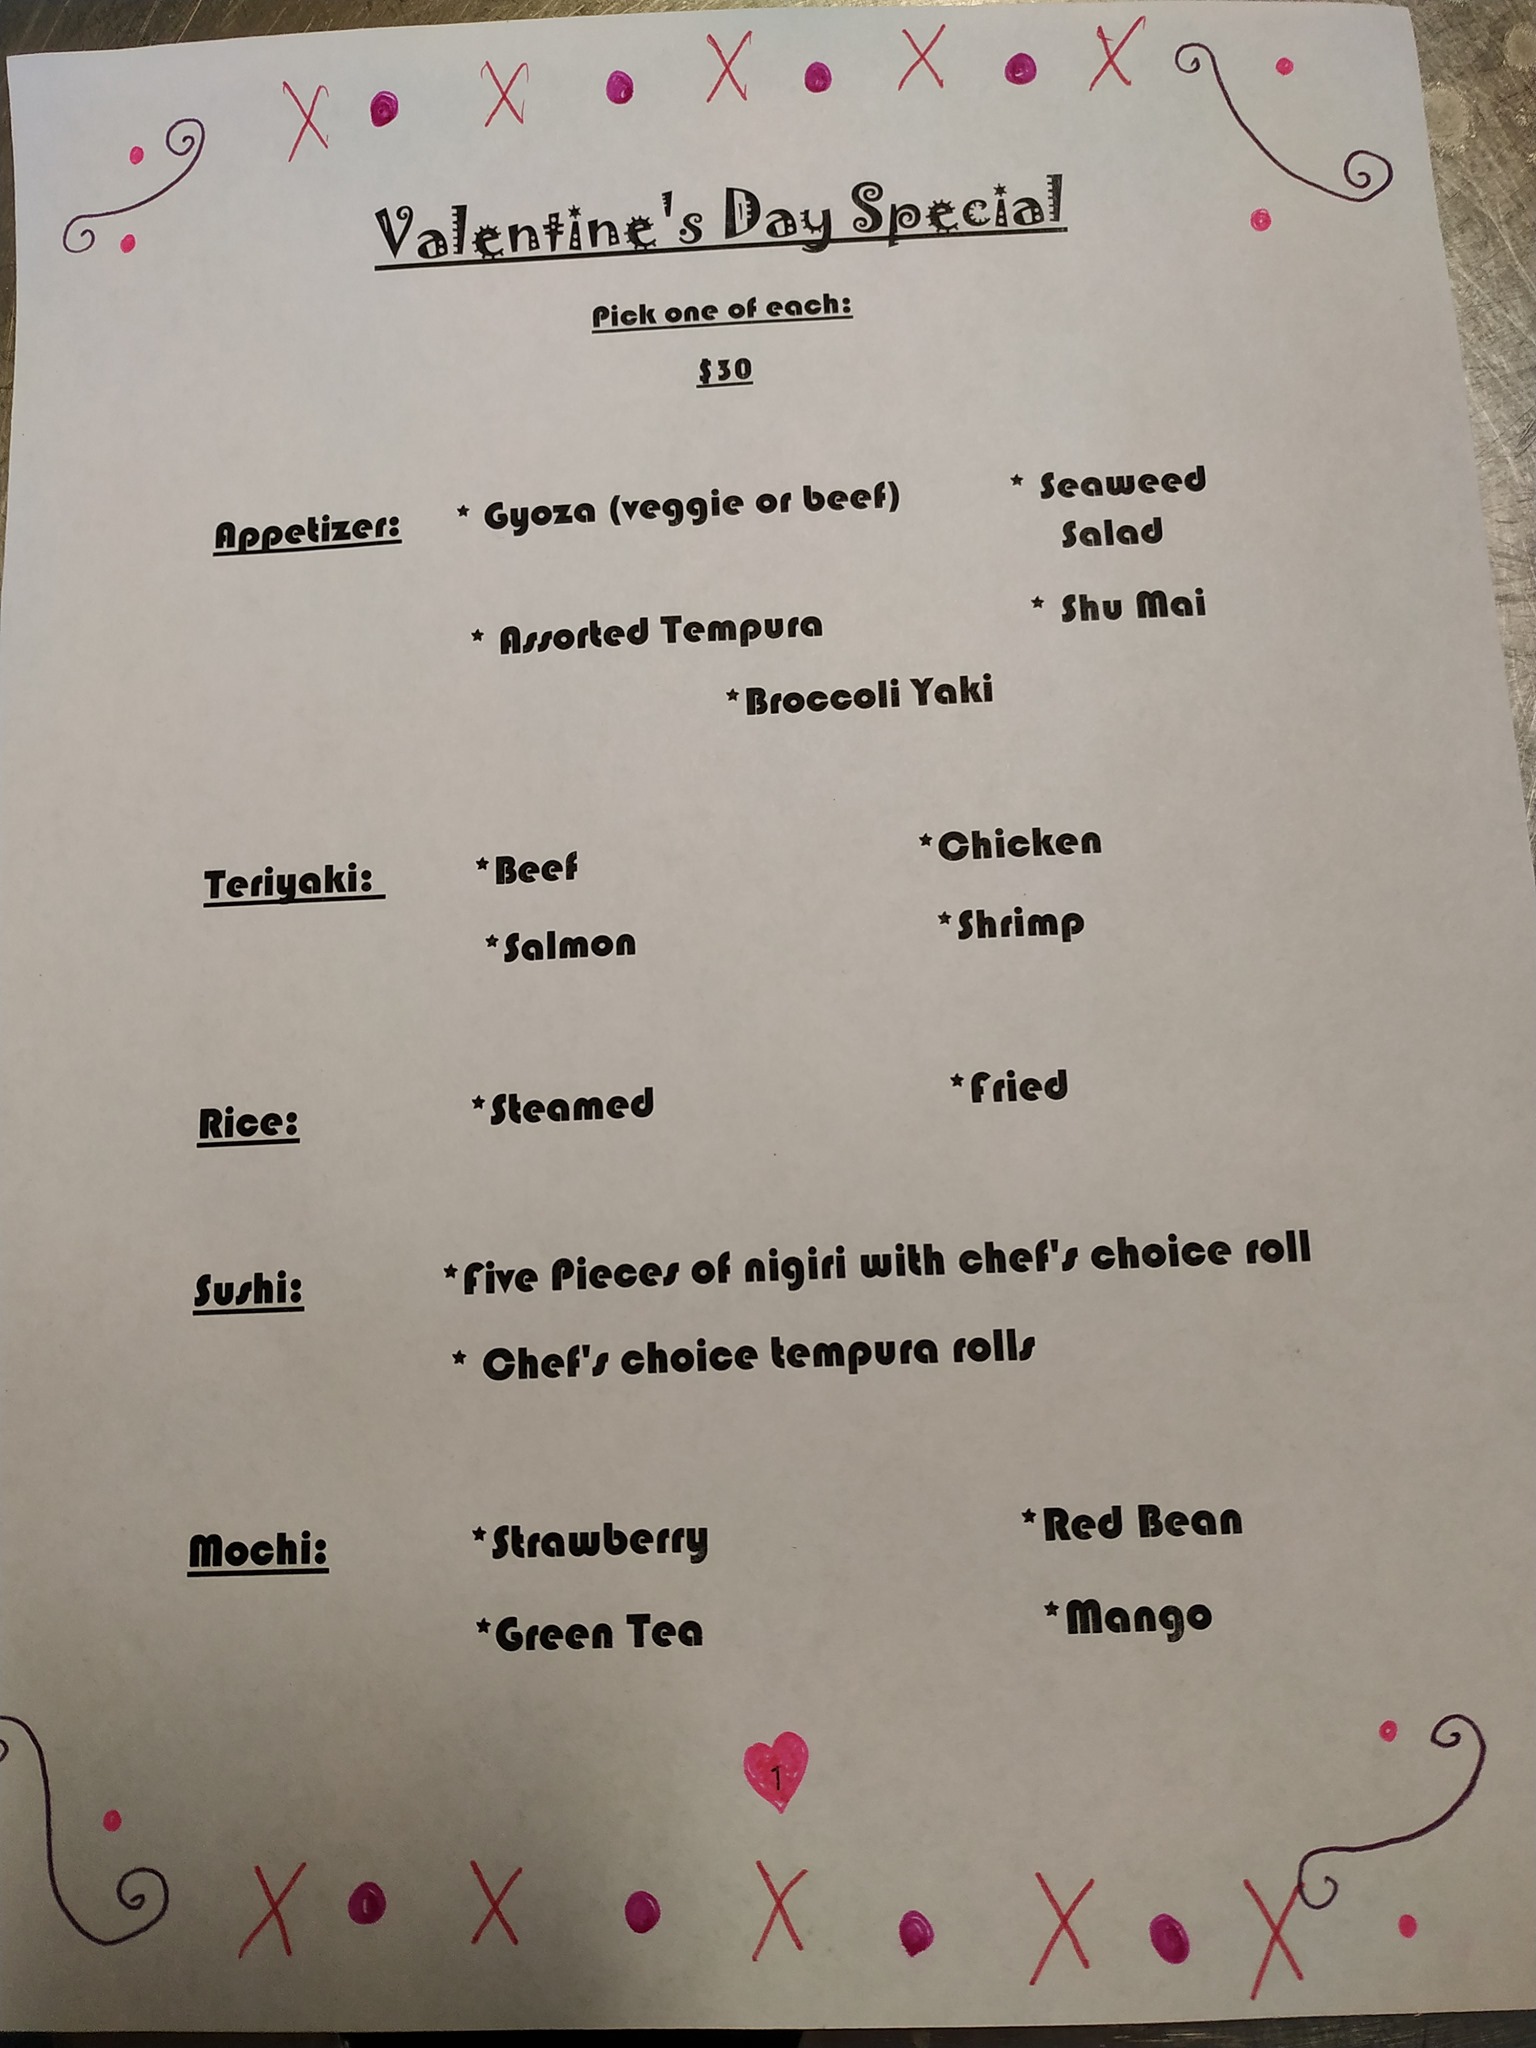 X X X X X
Valentine's Day Special
Pick one of each:
$30
Appetizer: * Gyoza (veggie or beef) * Seaweed
Salad
* Assorted Tempura * Shu Mai
*Broccoli Yaki
Teriyaki: *Beef *Chicken
*Salmon *Shrimp
Rice: *Steamed *Fried
Sushi: *Five Pieces of nigiri with chef's choice roll
* Chef's choice tempura rolls
Mochi: *Strawberry *Red Bean
*Green Tea *Mango
1
X X X X X